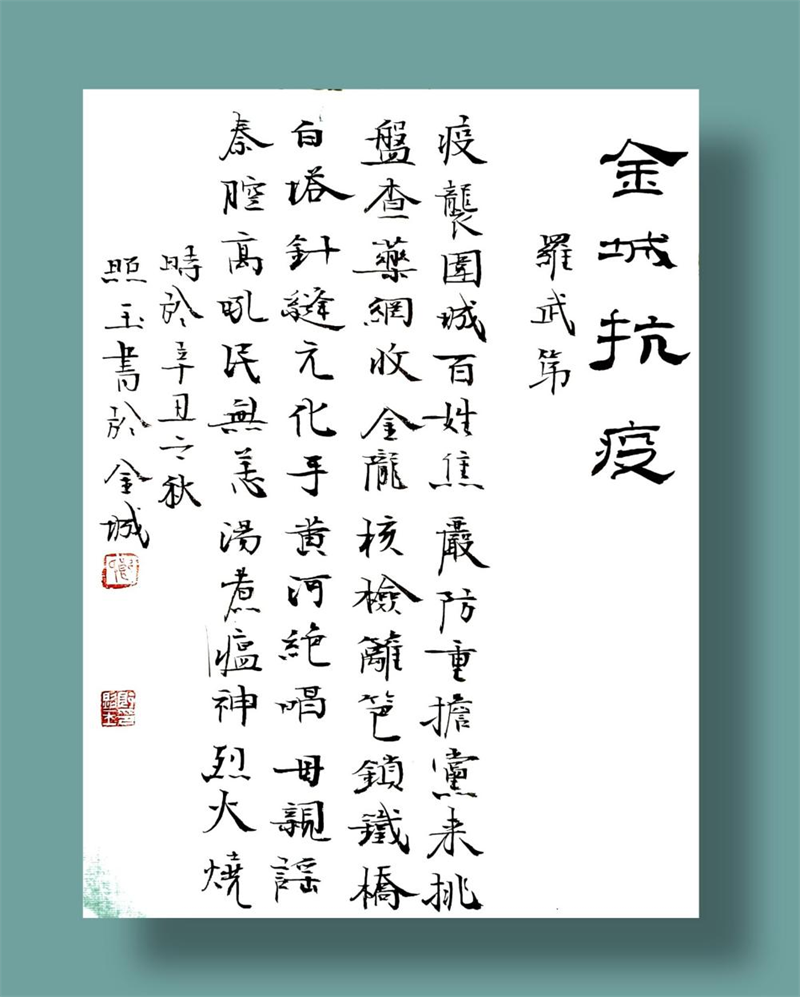 金城抗疫
羅武第
疫襲圍城百姓焦嚴防重擔黨来挑
盤查藥網收金隴核檢籬笆鎖鐵橋
白塔針縫元化手黄河絶唱母親謡
秦腔高吼民無恙湯煮瘟神烈火燒
時於辛丑之秋
照玉書於金城